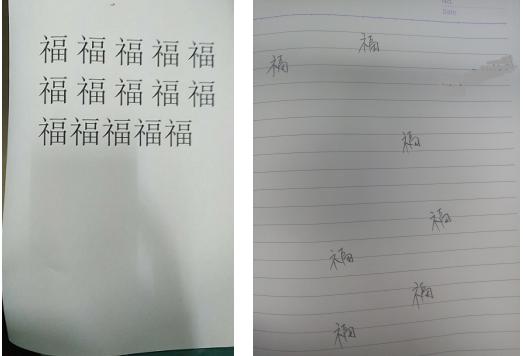 福 福 福 福 福
福 福 福 福 福
福福福福福
No.
Date
福
福
福
福
福
福
福